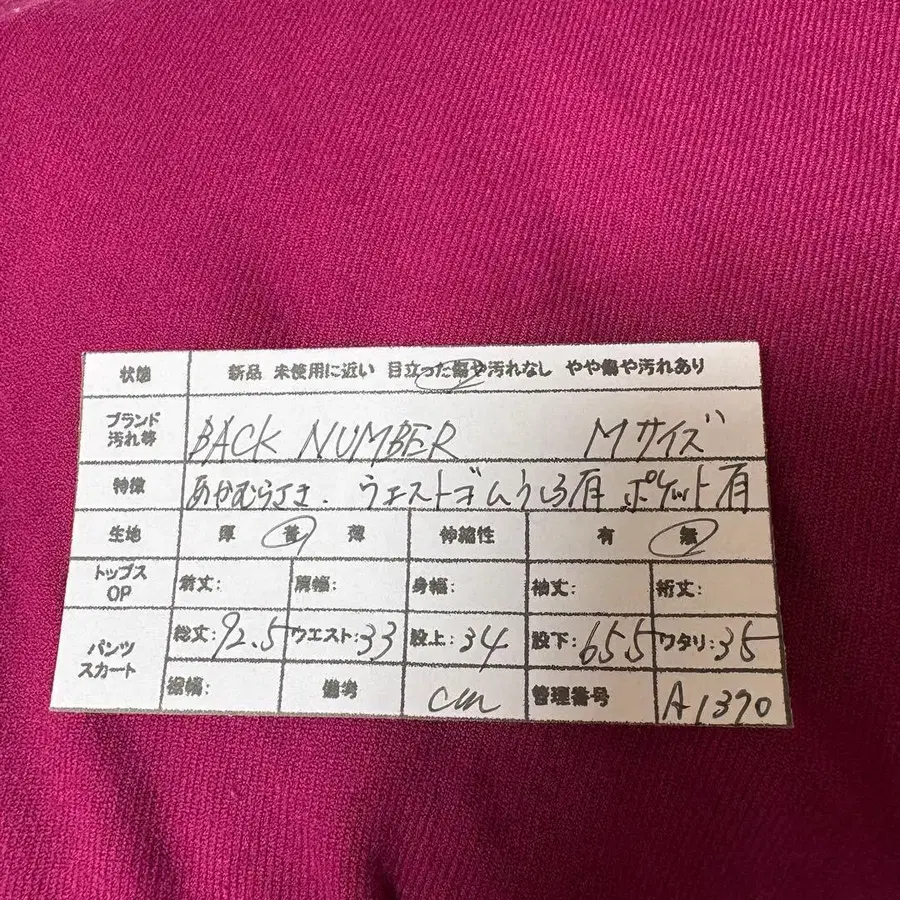 状態 新品 未使用に近い 目立った傷や汚れなし やや傷や汚れあり
ブランド
汚れ等 BACK NUMBER Mサイズ
特徴 あかむらさき. ウエストゴムうしろ有 ポケット有
生地 厚 普 薄 伸縮性 有 無
トップス
OP 着丈: 肩幅: 身幅: 袖丈: 裄丈:
パンツ
スカート 総丈:92.5 ウエスト:33 股上:34 股下:65.5 ワタリ:35
裾幅: 備考 cm 管理番号 A1370